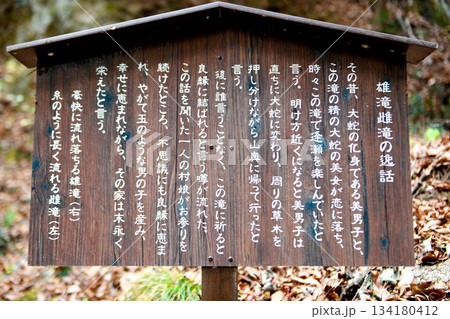 雄滝雌滝の逸話
その昔、大蛇の化身である美男子と、
この滝の精の大蛇の美女が恋に落ち、
時々この滝で逢瀬を楽しんでいたと
言う。明け方近くになると美男子は
直ちに大蛇に変わり、周りの草木を
押し分けながら山奥に帰って行ったと
言う。
後に誰言うことなく、この滝に祈ると
良縁に結ばれると言う噂が流れた。
この話を聞いた一人の村娘がお参りを
続けたところ、不思議にも良縁に恵ま
れ、やがて玉のような男の子を産み、
幸せに恵まれながら、その家は末永く
栄えたと言う。
豪快に流れ落ちる雄滝(右)
糸のように長く流れる雌滝(左)
134180412